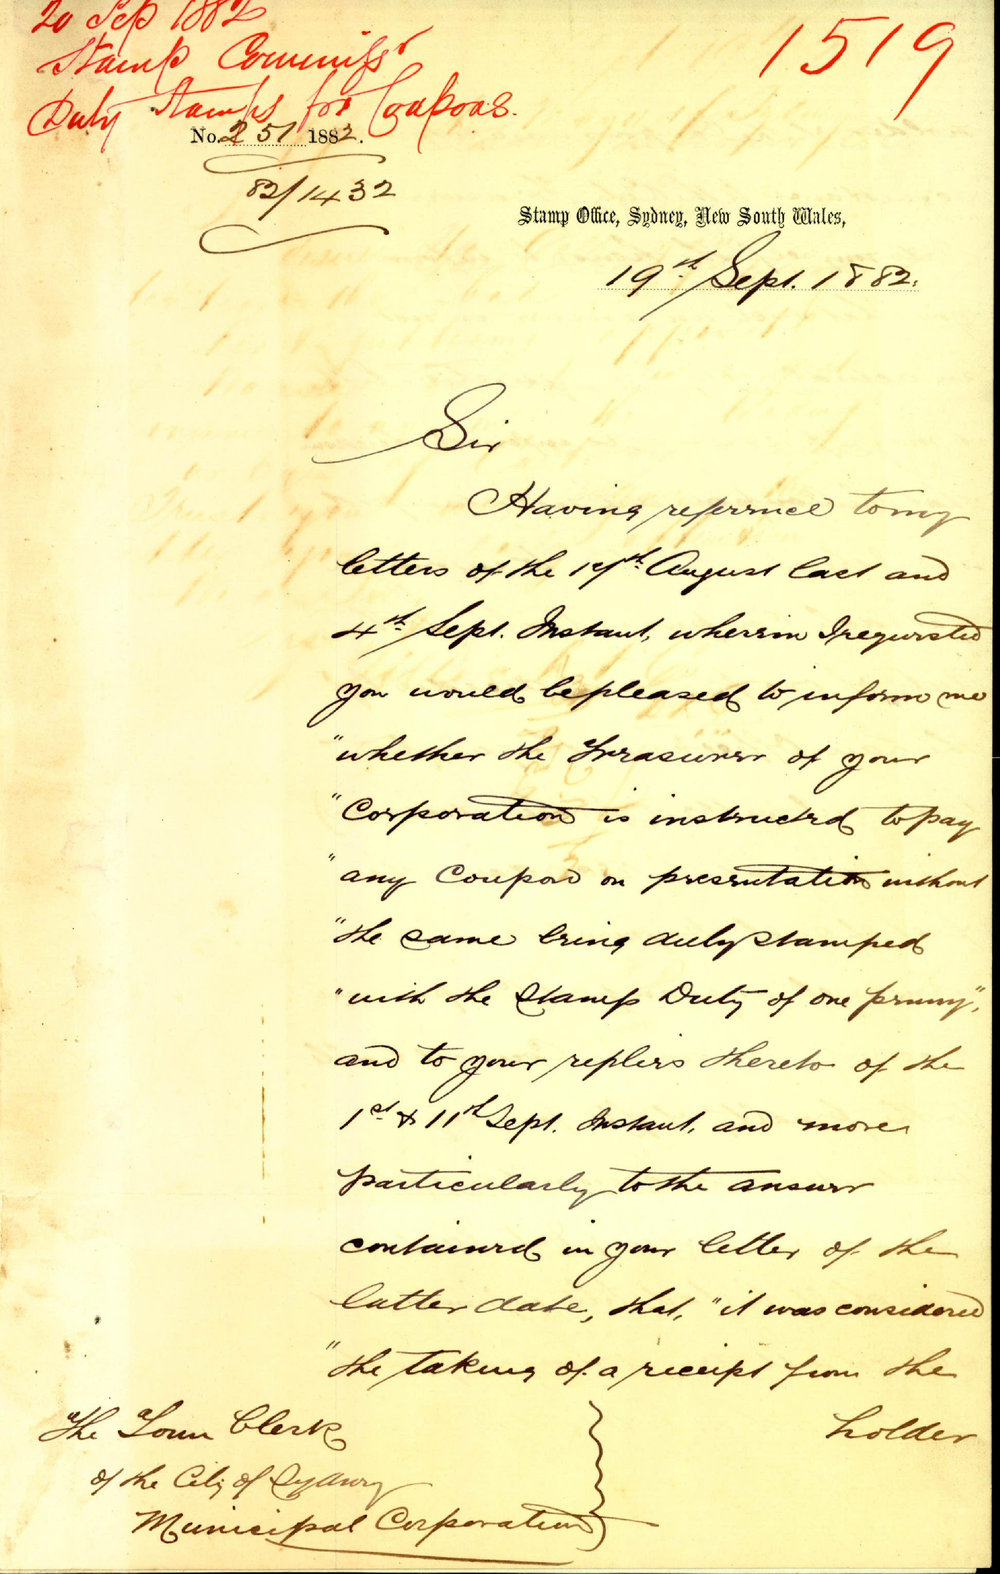 20 Sep 1882
1519
Stamp Commissr
Duty Stamps for Coupons.
No. 251 1882.
82/1432
Stamp Office, Sydney, New South Wales,
19th Sept. 1882.
Sir
Having referrnce to my
letters of the 19th August last and
4th Sept. Instant, wherein I requested
you would be pleased to inform me
"whether the Treasurer of your
"Corporation is instructed to pay
"any Coupon on presentation without
"the same being duly stamped
"with the Stamp Duty of one penny",
and to your replies thereto of the
1st & 11th Sept. Instant, and more
particularly to the answer
contained in your letter of the
latter date, that, "it was considered
"the taking of a receipt from the
holder
The Town Clerk
of the City of Sydney
Municipal Corporation